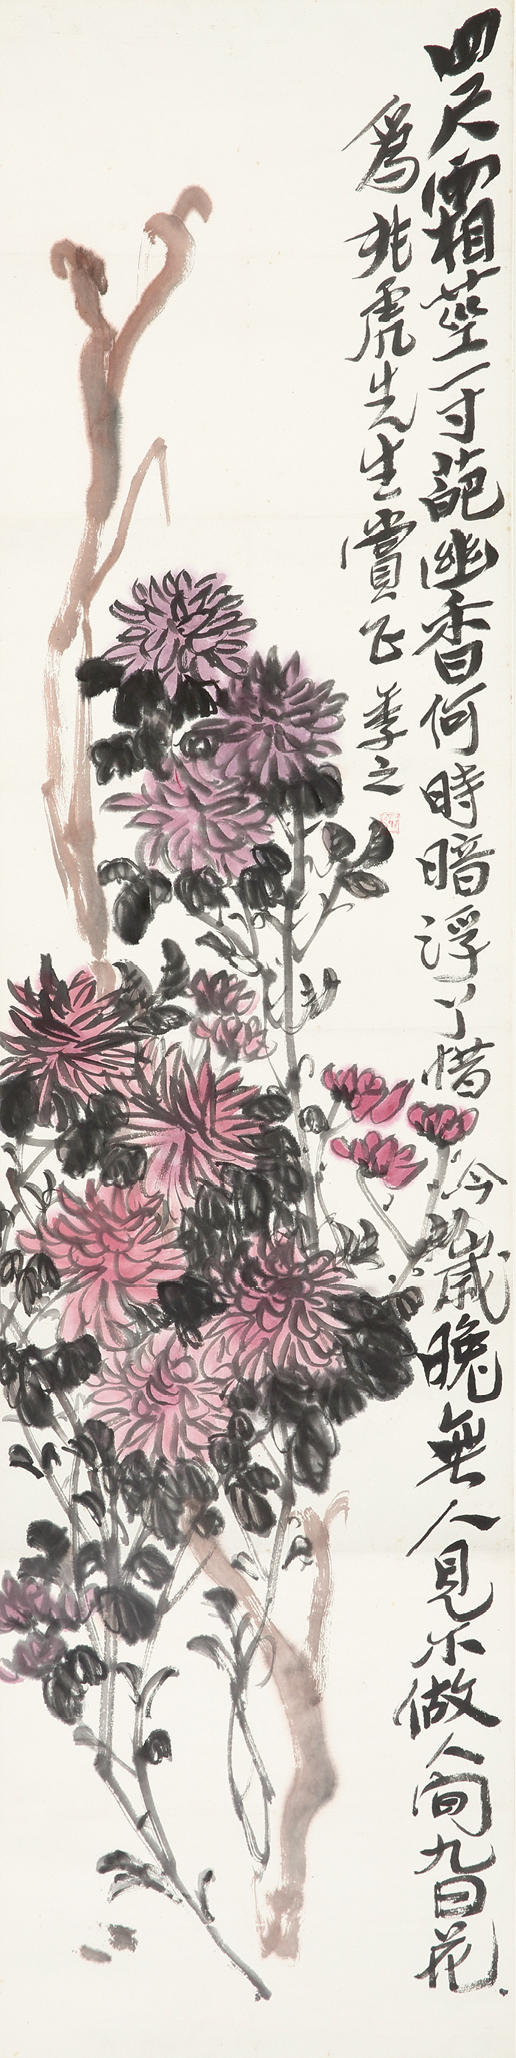 四尺霜莖一寸葩幽香何時暗浮了惜今歲晚無人見不做人間九日花
為兆虎先生賞正 季之